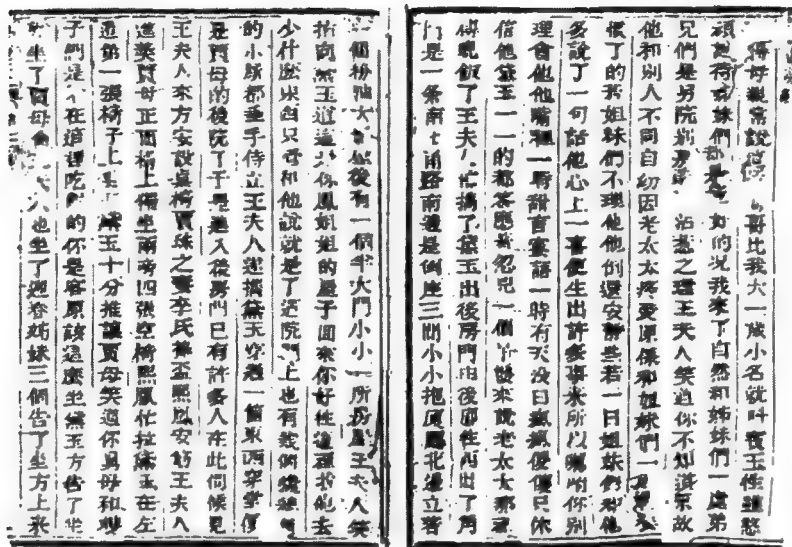 得母親常說這個哥哥比我大一歲小名就叫寶玉性雖憨
頑說待姊妹們却是極好的況我來了自然和姊妹們一處弟
兄們是另院別房沾惹之理王夫人笑道你不知道原故
他和別人不同自幼因老太太疼愛原係和姐妹們一處嬌養
慣了的若姐妹們不理他他倒還安靜些若一日姐妹們和他
多說了一句話他心上一喜便生出許多事來所以囑咐你別
理會他他嘴裡一時甜言蜜語一時有天沒日瘋瘋傻傻只休
信他黛玉一一的都答應着忽見一個丫鬟來說老太太那裡
傳晚飯了王夫人忙攜了黛玉出後房門由後廊往西出了角
門是一條南北甬路南邊是倒座三間小小抱厦廳北邊立着
一個粉油大影壁後有一個半大門小小一所房屋王夫人笑
指向黛玉道這是你鳳姐姐的屋子回來你好往這裡找他去
少什麼東西只管和他說就是了這院門上也有幾個纔總角
的小厮都垂手侍立王夫人遂攜黛玉穿過一個東西穿堂便
是賈母的後院了于是進入後房門已有許多人在此伺候見
王夫人來方安設桌椅賈珠之妻李氏捧盃熙鳳安筯王夫人
進羹賈母正面榻上獨坐兩旁四張空椅熙鳳忙拉黛玉在左
邊第一張椅子上坐下黛玉十分推讓賈母笑道你舅母和嫂
子們是不在這裡吃飯的你是客原該這麼坐黛玉方告了坐
坐了賈母命王夫人也坐了迎春姊妹三個告了坐方上來